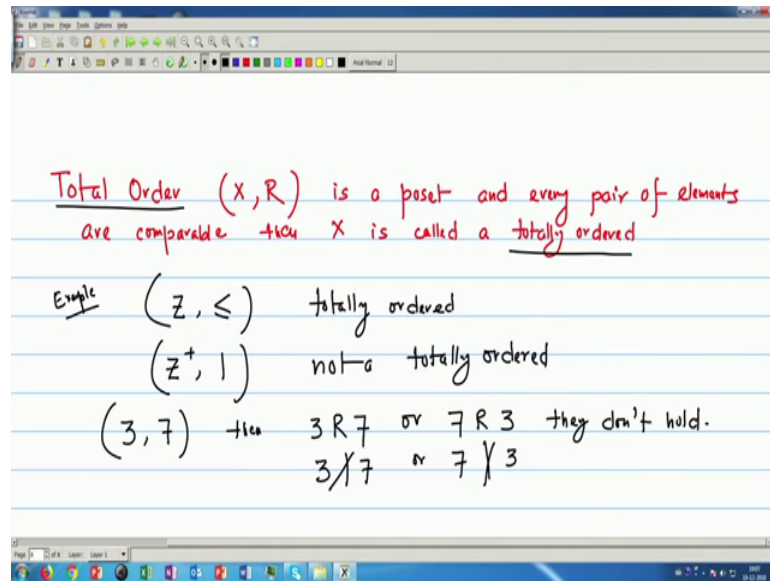 Journal
File Edit View Page Tools Options Help
Arial Normal 12
Total Order (X, R) is a poset and every pair of elements
are comparable then X is called a totally ordered
Example (Z, ≤) totally ordered
(Z⁺, |) not a totally ordered
(3, 7) then 3 R 7 or 7 R 3 they don't hold.
3 ∤ 7 or 7 ∤ 3
Page of 8 Layer: Layer 1